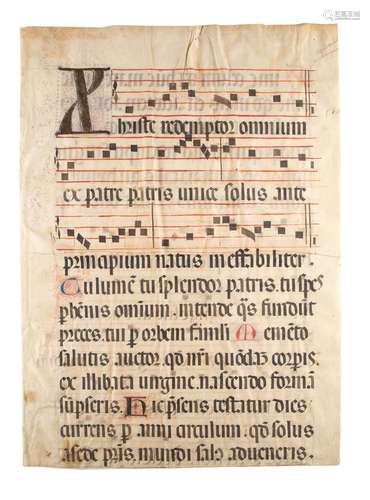 Xhriste redemptor omnium
ex patre patris unice solus ante
principium natus ineffabiliter.
Tu lumē tu splendor patris. tu spes
p̱hēnis omnium. intende q̄s fundūt
preces. tui p̱ orbem famli Memēto
salutis auctor. qđ nrī quōdā corp̱is.
ex illibata virgine. nascendo formā
sūpseris. Hic p̄sens testatur dies
currens p̱ anni circulum. qđ solus
a sede pr̄is. mundi salꝰ adveneris.